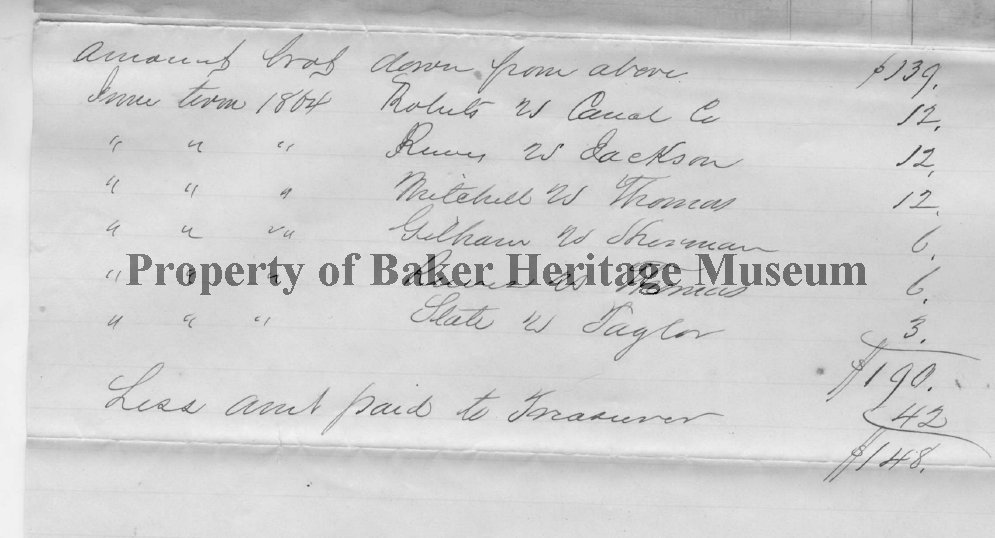 amount brot down from above $139.
June term 1864 Roberts vs Canal Co 12.
" " " vs Jackson 12.
" " " Mitchell vs Thomas 12.
" " " Gilham vs Sherman 6.
" " " vs Thomas 6.
Property of Baker Heritage Museum
" " " State vs Taylor 3.
$190.
Less amt paid to Treasurer 42
$148.